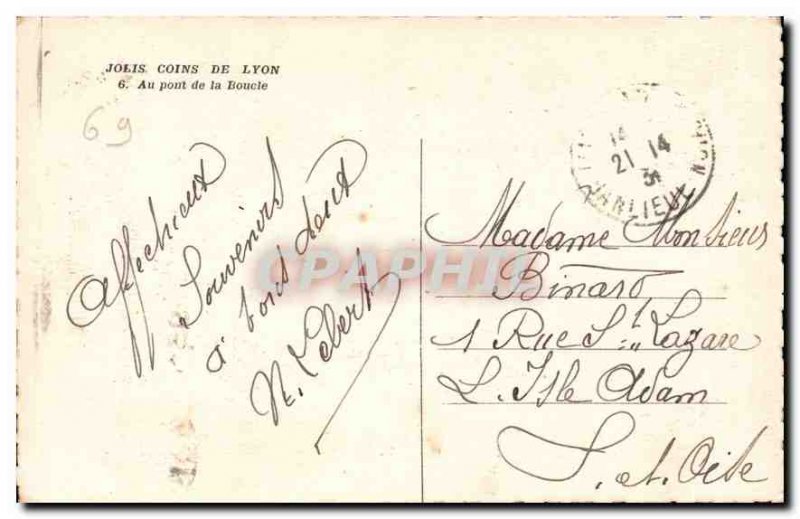 JOLIS COINS DE LYON
6. Au pont de la Boucle
69
Affectueux
Souvenirs
à vous deux
N. Lebert
CPARPHIL
21 14
Madame Monsieur
Binard
1 Rue St Lazare
L. Isle Adam
S. et. Oise